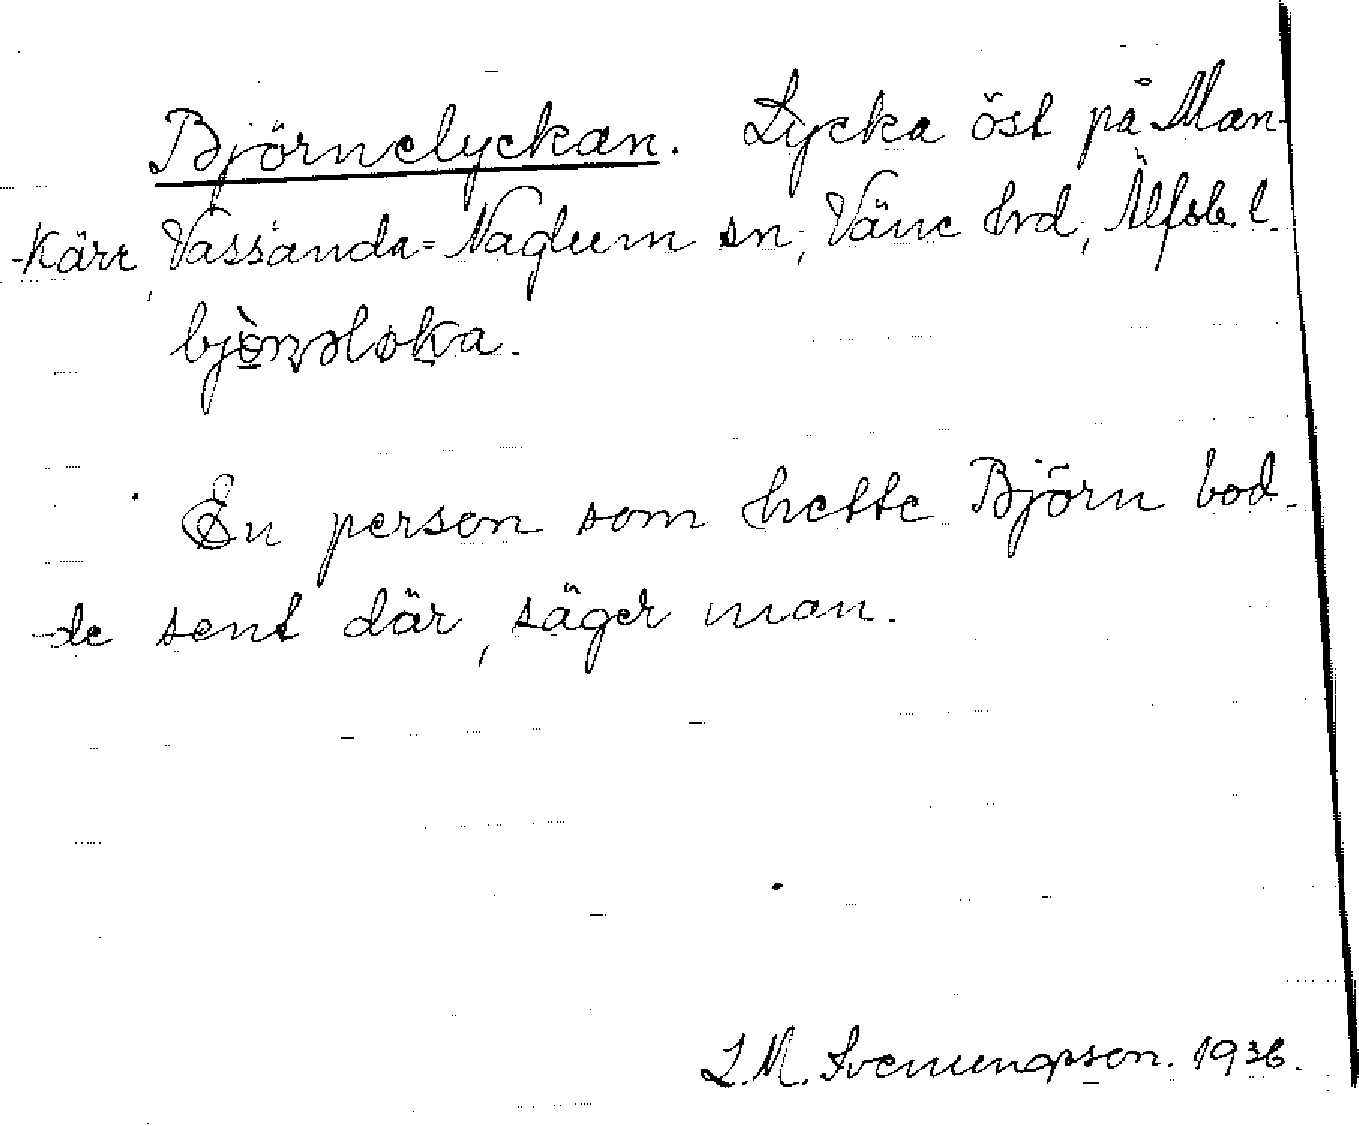 Björnelyckan. Lycka öst på Man-
-kärr, Vassända-Naglum sn, Väne hrd, Älfsb. l.
En person som hette Björn bod-
-de sent där, säger man.
L. M. Svenungsson. 1936.